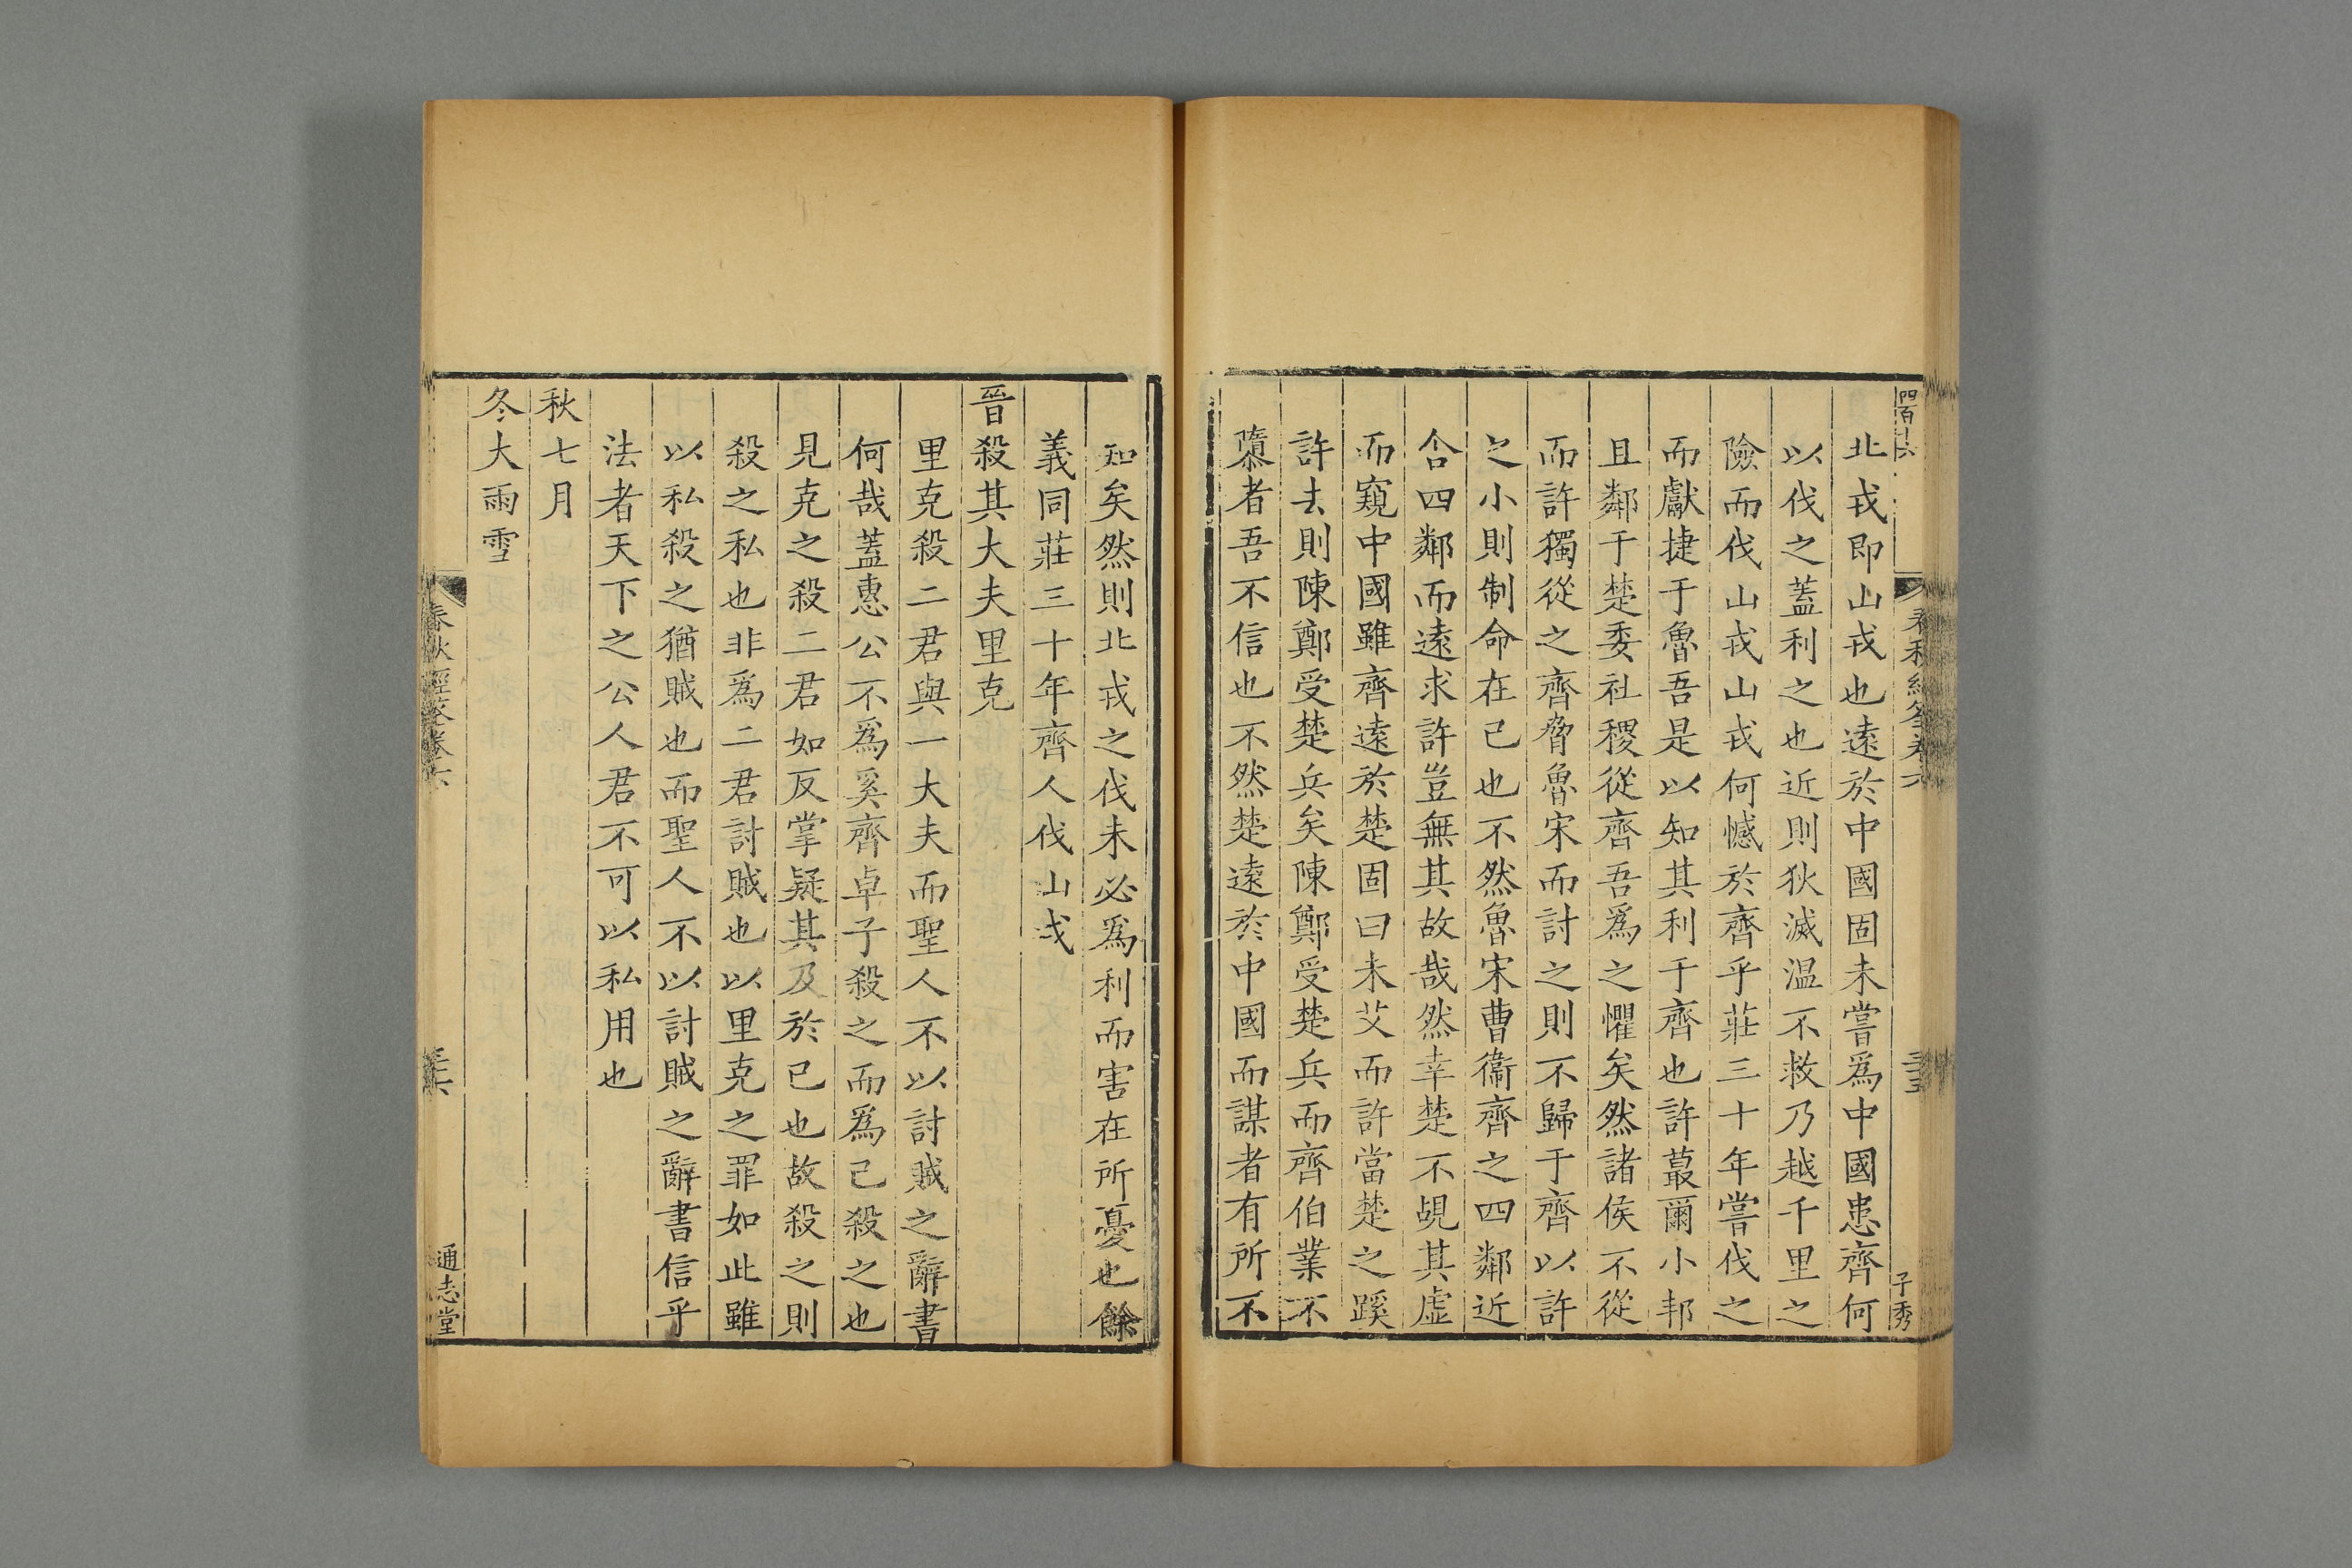 北戎即山戎也遠於中國固未嘗爲中國患齊何
以伐之蓋利之也近則狄滅温不救乃越千里之
險而伐山戎山戎何憾於齊乎莊三十年嘗伐之
而獻捷于魯吾是以知其利于齊也許蕞爾小邦
且鄰于楚委社稷從齊吾爲之懼矣然諸侯不從
而許獨從之齊脅魯宋而討之則不歸于齊以許
之小則制命在己也不然魯宋曹衞齊之四鄰近
舍四鄰而遠求許豈無其故哉然幸楚不覘其虛
而窺中國雖齊遠於楚固曰未艾而許當楚之蹊
許去則陳鄭受楚兵矣陳鄭受楚兵而齊伯業不
隳者吾不信也不然楚遠於中國而謀者有所不
子秀
知矣然則北戎之伐未必爲利而害在所憂也餘
義同莊三十年齊人伐山戎
晉殺其大夫里克
里克殺二君與一大夫而聖人不以討賊之辭書
何哉蓋惠公不爲奚齊卓子殺之而爲己殺之也
見克之殺二君如反掌疑其及於己也故殺之則
殺之私也非爲二君討賊也以里克之罪如此雖
以私殺之猶賊也而聖人不以討賊之辭書信乎
法者天下之公人君不可以私用也
秋七月
冬大雨雪
春秋經筌卷六
通志堂